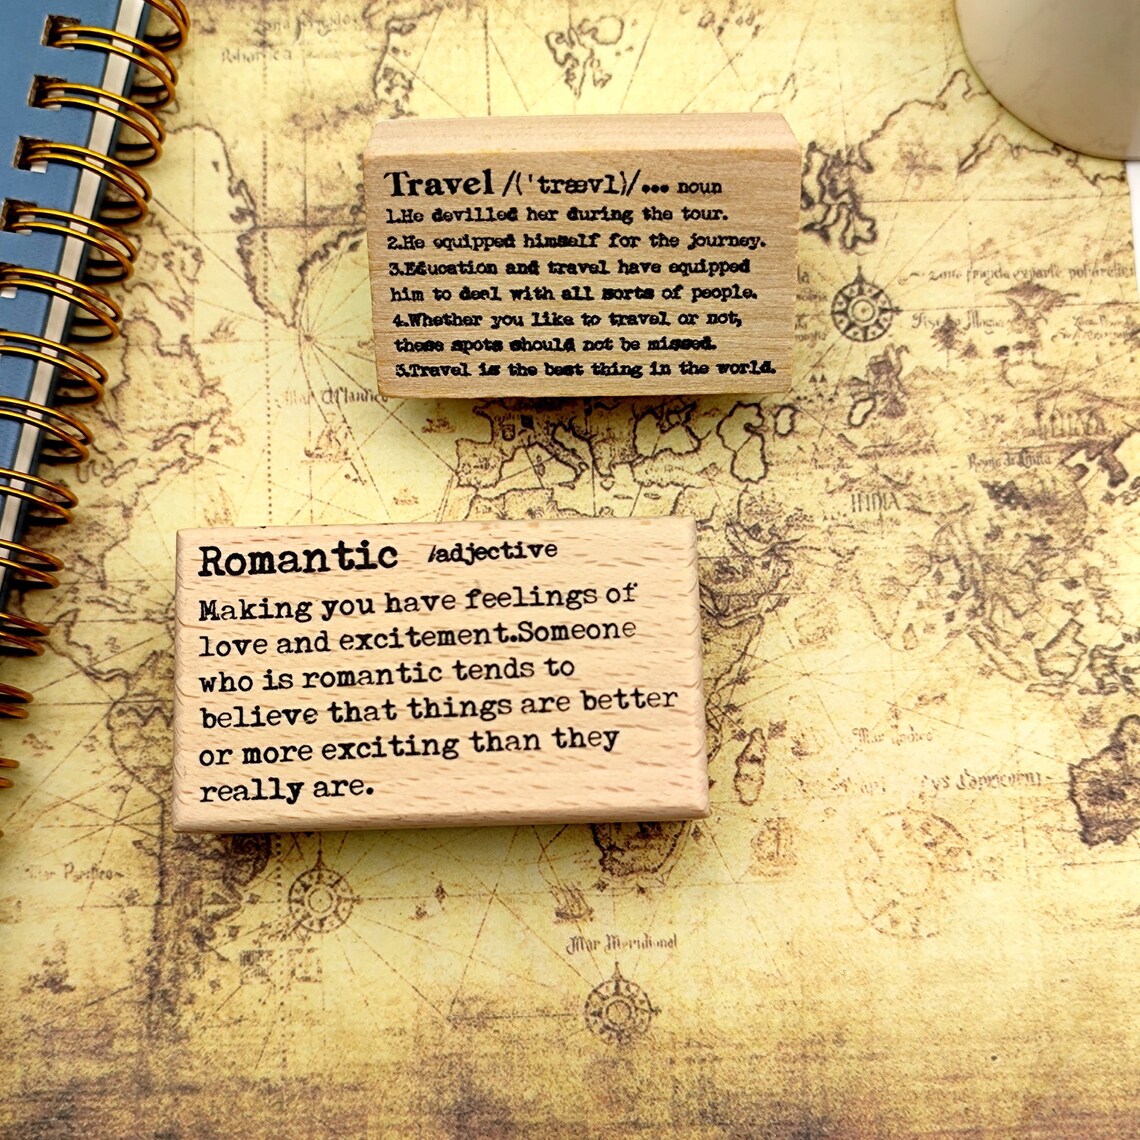 Travel /('trævl)/... noun
1.He devilled her during the tour.
2.He equipped himself for the journey.
3.Education and travel have equipped
him to deal with all sorts of people.
4.Whether you like to travel or not,
these spots should not be missed.
5.Travel is the best thing in the world.
Romantic /adjective
Making you have feelings of
love and excitement.Someone
who is romantic tends to
believe that things are better
or more exciting than they
really are.
INDIA
Mar Pacifico
Mar Meridional